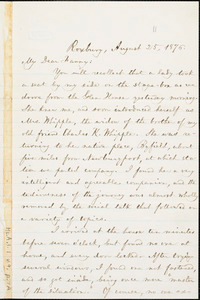 Roxbury, August 25, 1875.
My Dear Fanny:
You will recollect that a lady took
a seat by my side on the stage-box as we
down from the Glen House yesterday morning.
She knew me, and soon introduced herself as
Mrs. Whipple, the widow of the brother of my
old friend Charles K. Whipple. She was re-
turning to her native place, Byfield, about
five miles from Newburyport, at which sta-
tion we parted company. I found her a very
intelligent and agreeable companion, and the
tediousness of the journey was almost wholly
removed by the social talk that followed on
a variety of topics.
I arrived at the house ten minutes
before seven o'clock, but found no one at
home, and every door locked. After trying
several windows, I found one not fastened,
and so got inside, being once more "master
of the situation." Of course, no one